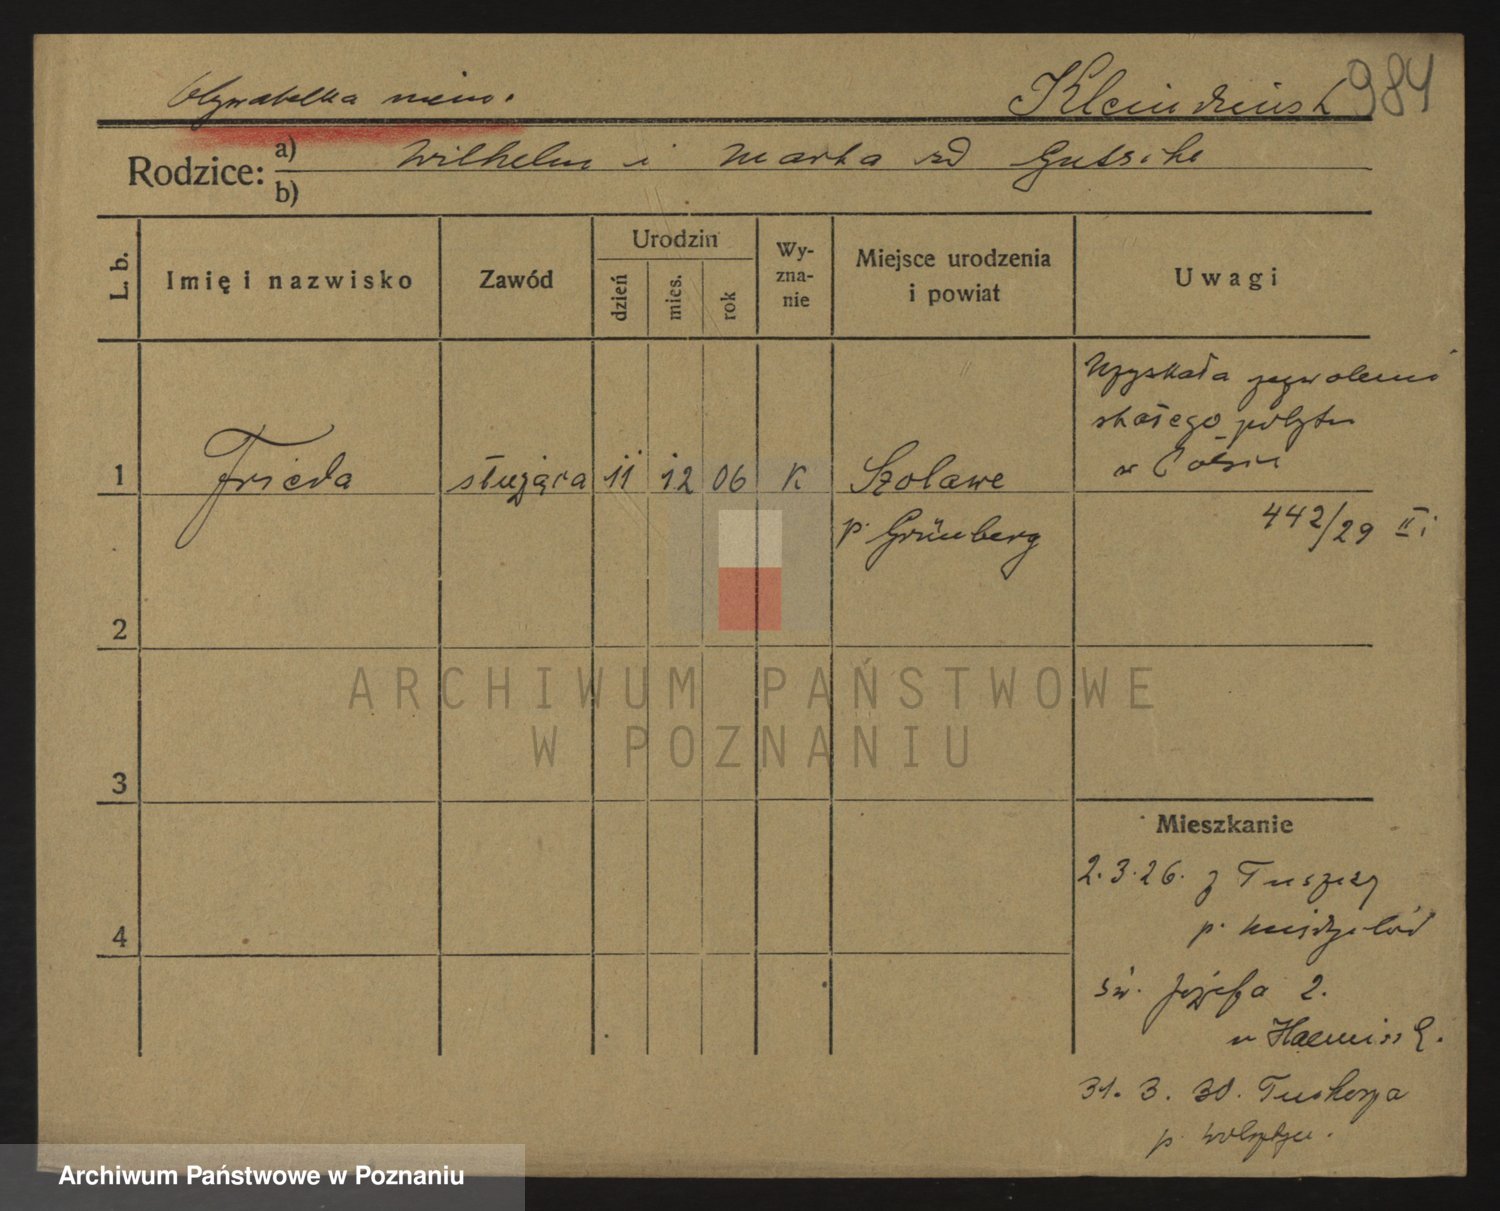 Obywatelka niem.
Kleindienst 984
Rodzice: a) Wilhelm i Marta zd Gutsche
b)
L. b.
Imię i nazwisko
Zawód
Urodzin
dzień
mies.
rok
Wy-
zna-
nie
Miejsce urodzenia
i powiat
Uwagi
Uzyskała zezwolenie
stałego pobytu
w Polsce
1 Frieda służąca 11 12 06 K Szolawe
p. Grünberg
442/29 II
2
ARCHIWUM PAŃSTWOWE
W POZNANIU
3
Mieszkanie
2.3.26. z
p. Międzychód
4
św. Józefa 2.
u
31. 3. 30.
p.
Archiwum Państwowe w Poznaniu